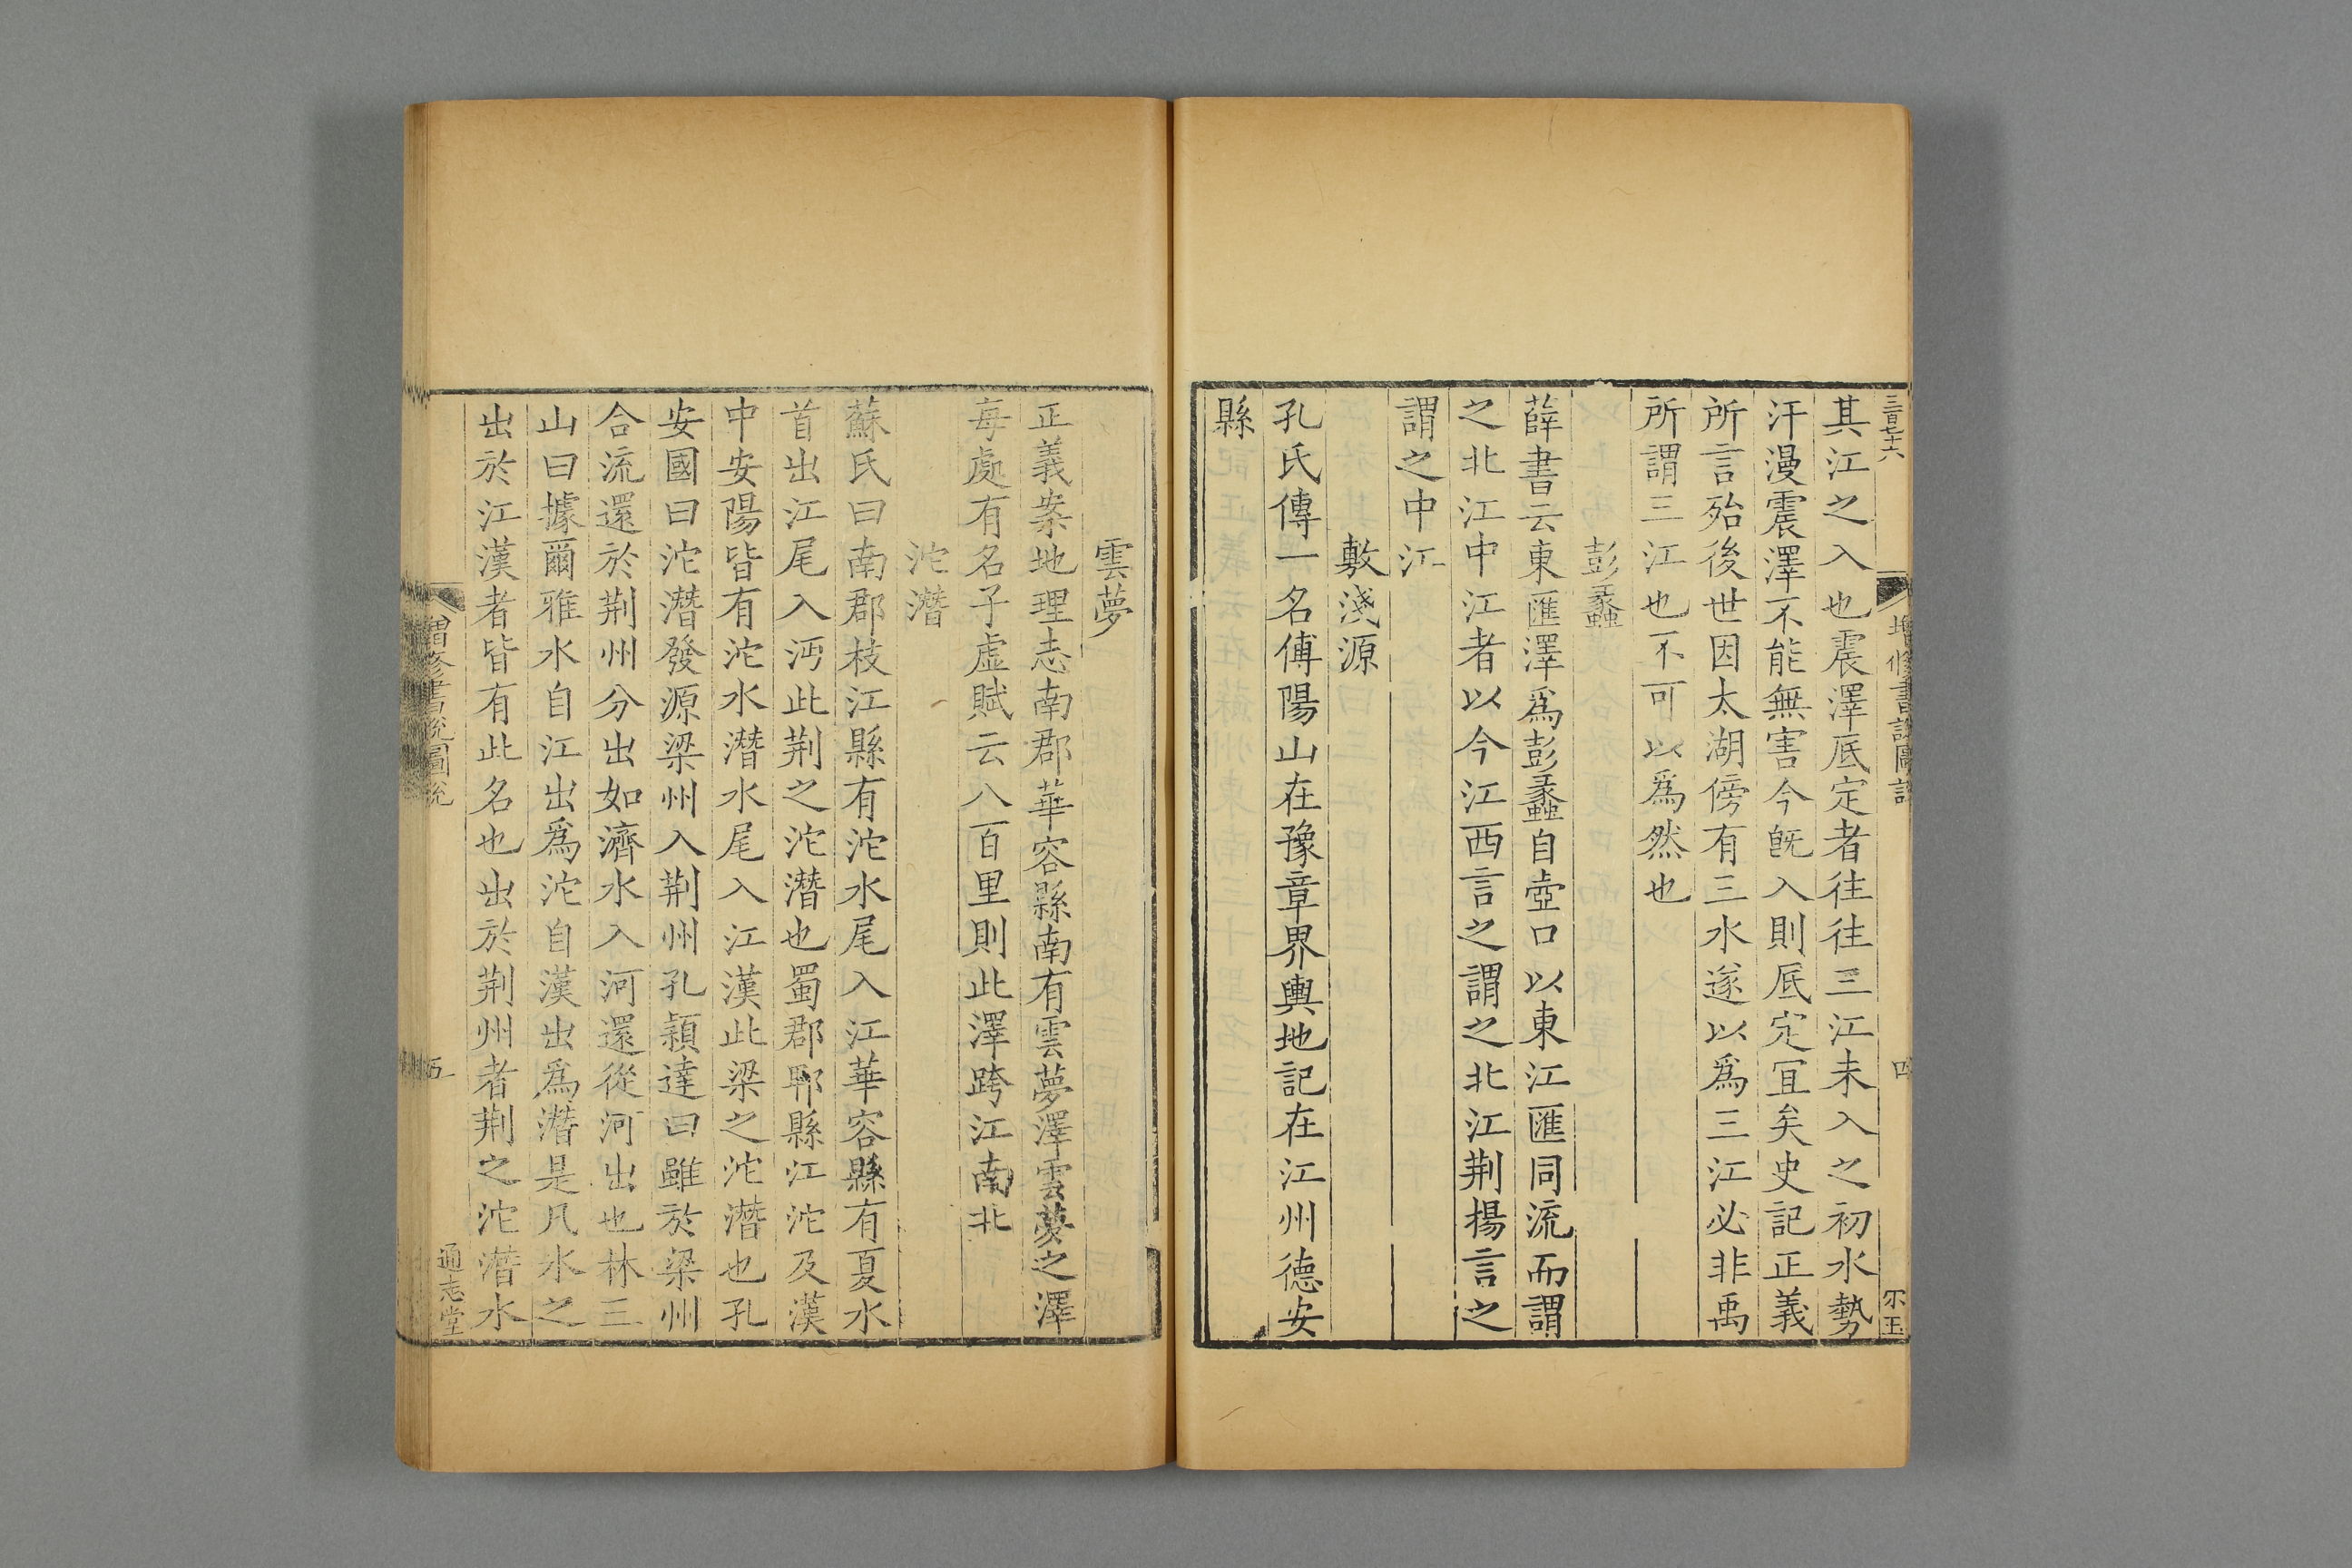 三百七十六
增修書說圖說
四
尔玉
其江之入也震澤底定者往往三江未入之初水勢
汗漫震澤不能無害今旣入則底定宜矣史記正義
所言殆後世因太湖傍有三水遂以爲三江必非禹
所謂三江也不可以爲然也
彭蠡
薛書云東匯澤爲彭蠡自壺口以東江匯同流而謂
之北江中江者以今江西言之謂之北江荆揚言之
謂之中江
敷淺源
孔氏傳一名傅陽山在豫章界輿地記在江州德安
縣
雲夢
正義案地理志南郡華容縣南有雲夢澤雲夢之澤
每處有名子虛賦云八百里則此澤跨江南北
沱潛
蘇氏曰南郡枝江縣有沱水尾入江華容縣有夏水
首出江尾入沔此荆之沱潛也蜀郡郫縣江沱及漢
中安陽皆有沱水潛水尾入江漢此梁之沱潛也孔
安國曰沱潛發源梁州入荆州孔穎達曰雖於梁州
合流還於荆州分出如濟水入河還從河出也林三
山曰據爾雅水自江出爲沱自漢出爲潛是凡水之
出於江漢者皆有此名也出於荆州者荆之沱潛水
增修書說圖說
五
通志堂